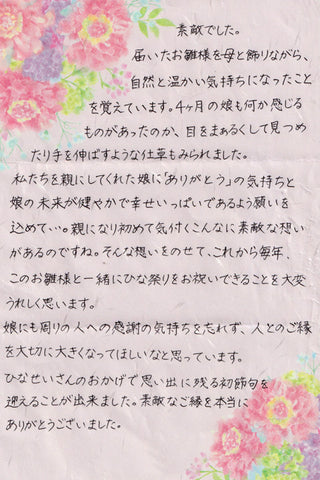 素敵でした。
届いたお雛様を母と飾りながら、
自然と温かい気持ちになったこと
を覚えています。4ヶ月の娘も何か感じる
ものがあったのか、目をまぁるくして見つめ
たり手を伸ばすような仕草もみられました。
私たちを親にしてくれた娘に「ありがとう」の気持ちと
娘の未来が健やかで幸せいっぱいであるよう願いを
込めて…。親になり初めて気付くこんなに素敵な想い
があるのですね。そんな想いをのせて、これから毎年、
このお雛様と一緒にひな祭りをお祝いできることを大変
うれしく思います。
娘にも周りの人への感謝の気持ちを忘れず、人とのご縁
を大切に大きくなってほしいなと思っています。
ひなせいさんのおかげで思い出に残る初節句を
迎えることが出来ました。素敵なご縁を本当に
ありがとうございました。